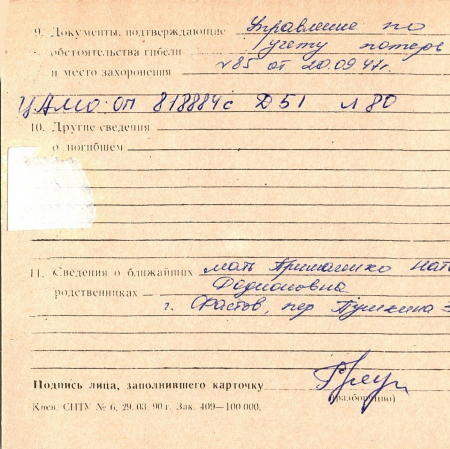 9. Документы, подтверждающие Управление по
обстоятельства гибели учету потерь
и место захоронения №85 от 20.09.47г.
ЦАМО: оп 818884с Д51 л 80
10. Другие сведения
о погибшем
11. Сведения о ближайших мать
родственниках
г. Фастов, пер Пушкина
Подпись лица, заполнившего карточку
(разборчиво)
Киев. СПТУ № 6, 29. 03. 90 г. Зак. 409—100 000.